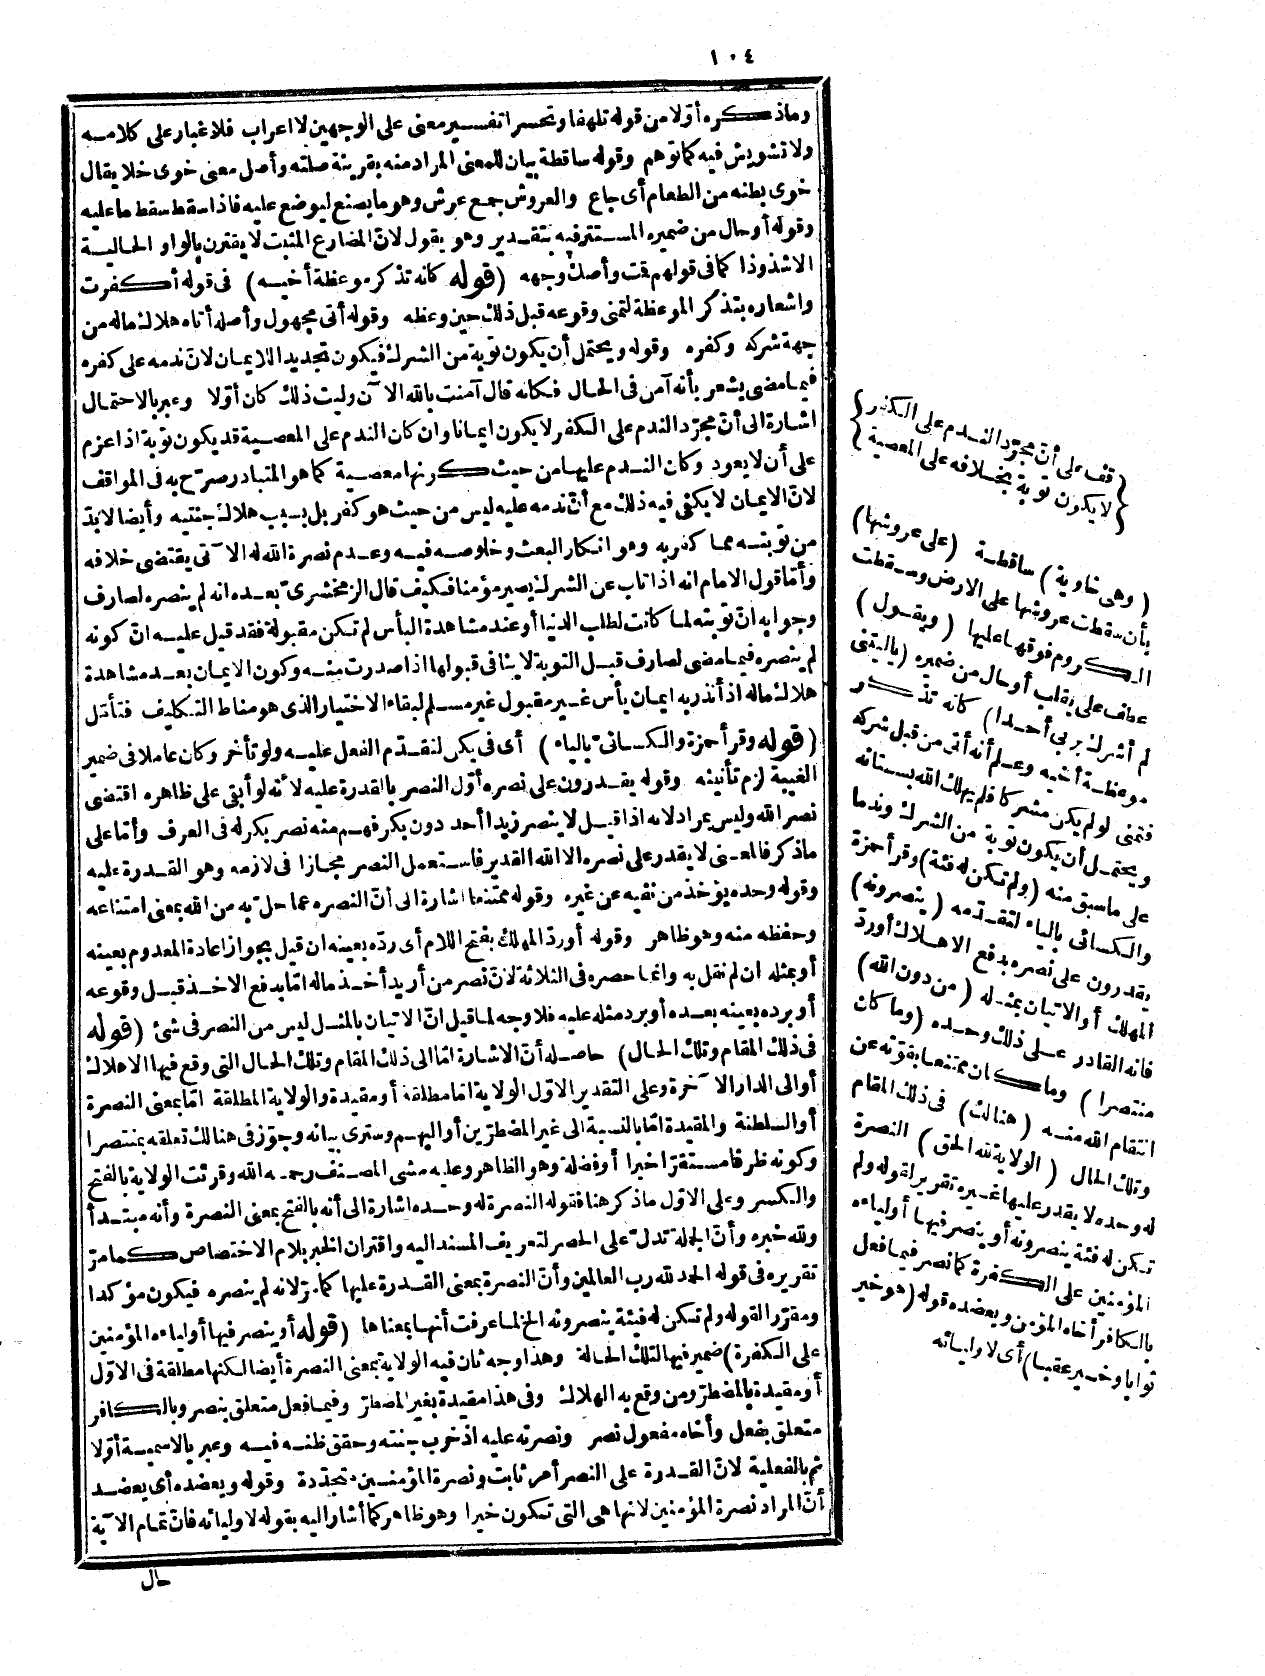 ١٠٤
وماذكره أولا من قوله تلهفا وتحسرا تفسير معنى على الوجهين لا اعراب فلا غبار على كلامه
ولا تشويش فيه كما توهم وقوله ساقطة بيان للمعنى المراد منه بقرينة صلته وأصل معنى خوى خلا يقال
خوى بطنه من الطعام أى جاع والعروش جمع عرش وهو ما يصنع ليوضع عليه فاذا سقط سقط ما عليه
وقوله أو حال من ضميره المستتر فيه بتقدير وهو يقول لانّ المضارع المثبت لا يقترن بالواو الحالية
الا شذوذا كما فى قولهم قت وأصك وجهه (قوله كانه تذكر موعظة أخيه) فى قوله أكفرت
واشعاره بتذكر الموعظة لتمنى وقوعه قبل ذلك حين وعظه وقوله أتى مجهول وأصله أتاه هلاك ماله من
جهة شركه وكفره وقوله ويحتمل أن يكون توبة من الشرك فيكون تجديدا للايمان لانّ ندمه على كفره
فيما مضى يشعر بأنه آمن فى الحال فكانه قال آمنت بالله الآن وليت ذلك كان أوّلا وعبر بالاحتمال
اشارة الى أنّ مجرّد الندم على الكفر لا يكون ايمانا وان كان الندم على المعصية قد يكون توبة اذا عزم
على أن لا يعود وكان الندم عليها من حيث كونها معصية كما هو المتبادر صرّح به فى المواقف
لانّ الايمان لا يكفى فيه ذلك مع أنّ ندمه عليه ليس من حيث هو كفر بل بسبب هلاك جنتيه وأيضا لا بدّ
من توبته مما كفر به وهو انكار البعث وخلوصه فيه وعدم نصرة الله له الآتى يقتضى خلافه
وأمّا قول الامام انه اذا تاب عن الشرك يصير مؤمنا فكيف قال الزمخشرىّ بعده انه لم ينصره لصارف
وجوابه انّ توبته لما كانت لطلب الدنيا أو عند مشاهدة البأس لم تكن مقبولة فقد قيل عليه انّ كونه
لم ينصره فيما مضى لصارف قبل التوبة لا ينافى قبولها اذا صدرت منه وكون الايمان بعد مشاهدة
هلاك ماله اذ أنذر به ايمان يأس غير مقبول غير مسلم لبقاء الاختيار الذى هو مناط التكليف فتأمّل
(قوله وقرأ حمزة والكسائىّ بالياء) أى فى يكن لتقدّم الفعل عليه ولو تأخر وكان عاملا فى ضمير
الغيبة لزم تأنيثه وقوله يقدرون على نصره أوّل النصر بالقدرة عليه لانه لو أبقى على ظاهره اقتضى
نصر الله وليس بمراد لانه اذا قيل لا ينصر زيدا أحد دون بكر فهم منه نصر بكر له فى العرف وأمّا على
ما ذكر فالمعنى لا يقدر على نصره الا الله القدير فاستعمل النصر مجازا فى لازمه وهو القدرة عليه
وقوله وحده يؤخذ من نفيه عن غيره وقوله ممتنعا اشارة الى أنّ النصره عما حل به من الله بمعنى امتناعه
وحفظه منه وهو ظاهر وقوله أوردّ المهلك بفتح اللام أى ردّه بعينه ان قيل بجواز اعادة المعدوم بعينه
أو بمثله ان لم نقل به وانما حصره فى الثلاثة لانّ نصر من أريد أخذ ماله امّا بدفع الاخذ قبل وقوعه
أو برده بعينه بعده أو برد مثله عليه فلا وجه لما قيل انّ الاتيان بالمثل ليس من النصر فى شئ (قوله
فى ذلك المقام وتلك الحال) حاصله أنّ الاشارة امّا الى ذلك المقام وتلك الحال التى وقع فيها الاهلاك
أو الى الدار الآخرة وعلى التقدير الاوّل الولاية امّا مطلقة أو مقيدة والولاية المطلقة امّا بمعنى النصرة
أو السلطنة والمقيدة امّا بالنسبة الى غير المضطرّين أو اليهم وسترى بيانه وجوّز فى هنالك تعلقه بمنتصرا
وكونه ظرفا مستقرّا خبرا أو فضلة وهو الظاهر وعليه مشى المصنف رحمه الله وقرئت الولاية بالفتح
والكسر وعلى الاوّل ماذكر هنا فقوله النصرة له وحده اشارة الى أنه بالفتح بمعنى النصرة وأنه مبتدأ
ولله خبره وأنّ الجملة تدلّ على الحصر لتعريف المسند اليه واقتران الخبر بلام الاختصاص كما مرّ
تقريره فى قوله الحمد لله رب العالمين وأنّ النصرة بمعنى القدرة عليها كما مرّ لانه لم ينصره فيكون مؤكدا
ومقرّرا لقوله ولم تكن له فيئة ينصرونه الخ لما عرفت أنها بمعناها (قوله أو ينصر فيها أولياءه المؤمنين
على الكفرة) ضمير فيها لتلك الحالة وهذا وجه ثان فيه الولاية بمعنى النصرة أيضا لكنها مطلقة فى الاوّل
أو مقيدة بالمضطرّ ومن وقع به الهلاك وفى هذا مقيدة بغير المضطرّ وفيما فعل متعلق بنصر وبالكافر
متعلق بفعل وأخاه مفعول نصر ونصرته عليه اذ خرب جنته وحقق ظنه فيه وعبر بالاسمية أوّلا
ثم بالفعلية لانّ القدرة على النصر أمر ثابت ونصرة المؤمنين متجدّدة وقوله ويعضده أى يعضد
أنّ المراد نصرة المؤمنين لانها هى التى تكون خيرا وهو ظاهر كما أشار اليه بقوله لاوليائه فانّ تمام الآية
حال
قف على أنّ مجرّد الندم على الكفر
لا يكون توبة بخلافه على المعصية
(وهى خاوية) ساقطة (على عروشها)
بأن سقطت عروشها على الارض وسقطت
الكروم فوقها عليها (ويقول)
عطف على يقلب أو حال من ضميره (ياليتنى
لم أشرك بربى أحدا) كانه تذكر
موعظة أخيه وعلم أنه أتى من قبل شركه
فتمنى لو لم يكن مشركا فلم يهلك الله بستانه
ويحتمل أن يكون توبة من الشرك وندما
على ما سبق منه (ولم تكن له فئة) وقرأ حمزة
والكسائى بالياء لتقدمه (ينصرونه)
يقدرون على نصره بدفع الاهلاك أوردّ
المهلك أو الاتيان بمثله (من دون الله)
فانه القادر على ذلك وحده (وما كان
منتصرا) وما كان ممتنعا بقوّته عن
انتقام الله منه (هنالك) فى ذلك المقام
وتلك الحال (الولاية لله الحق) النصرة
له وحده لا يقدر عليها غيره تقرير لقوله ولم
تكن له فئة ينصرونه أو ينصر فيها أولياءه
المؤمنين على الكفرة كما نصر فيما فعل
بالكافر أخاه المؤمن ويعضده قوله (هو خير
ثوابا وخير عقبا) أى لاوليائه